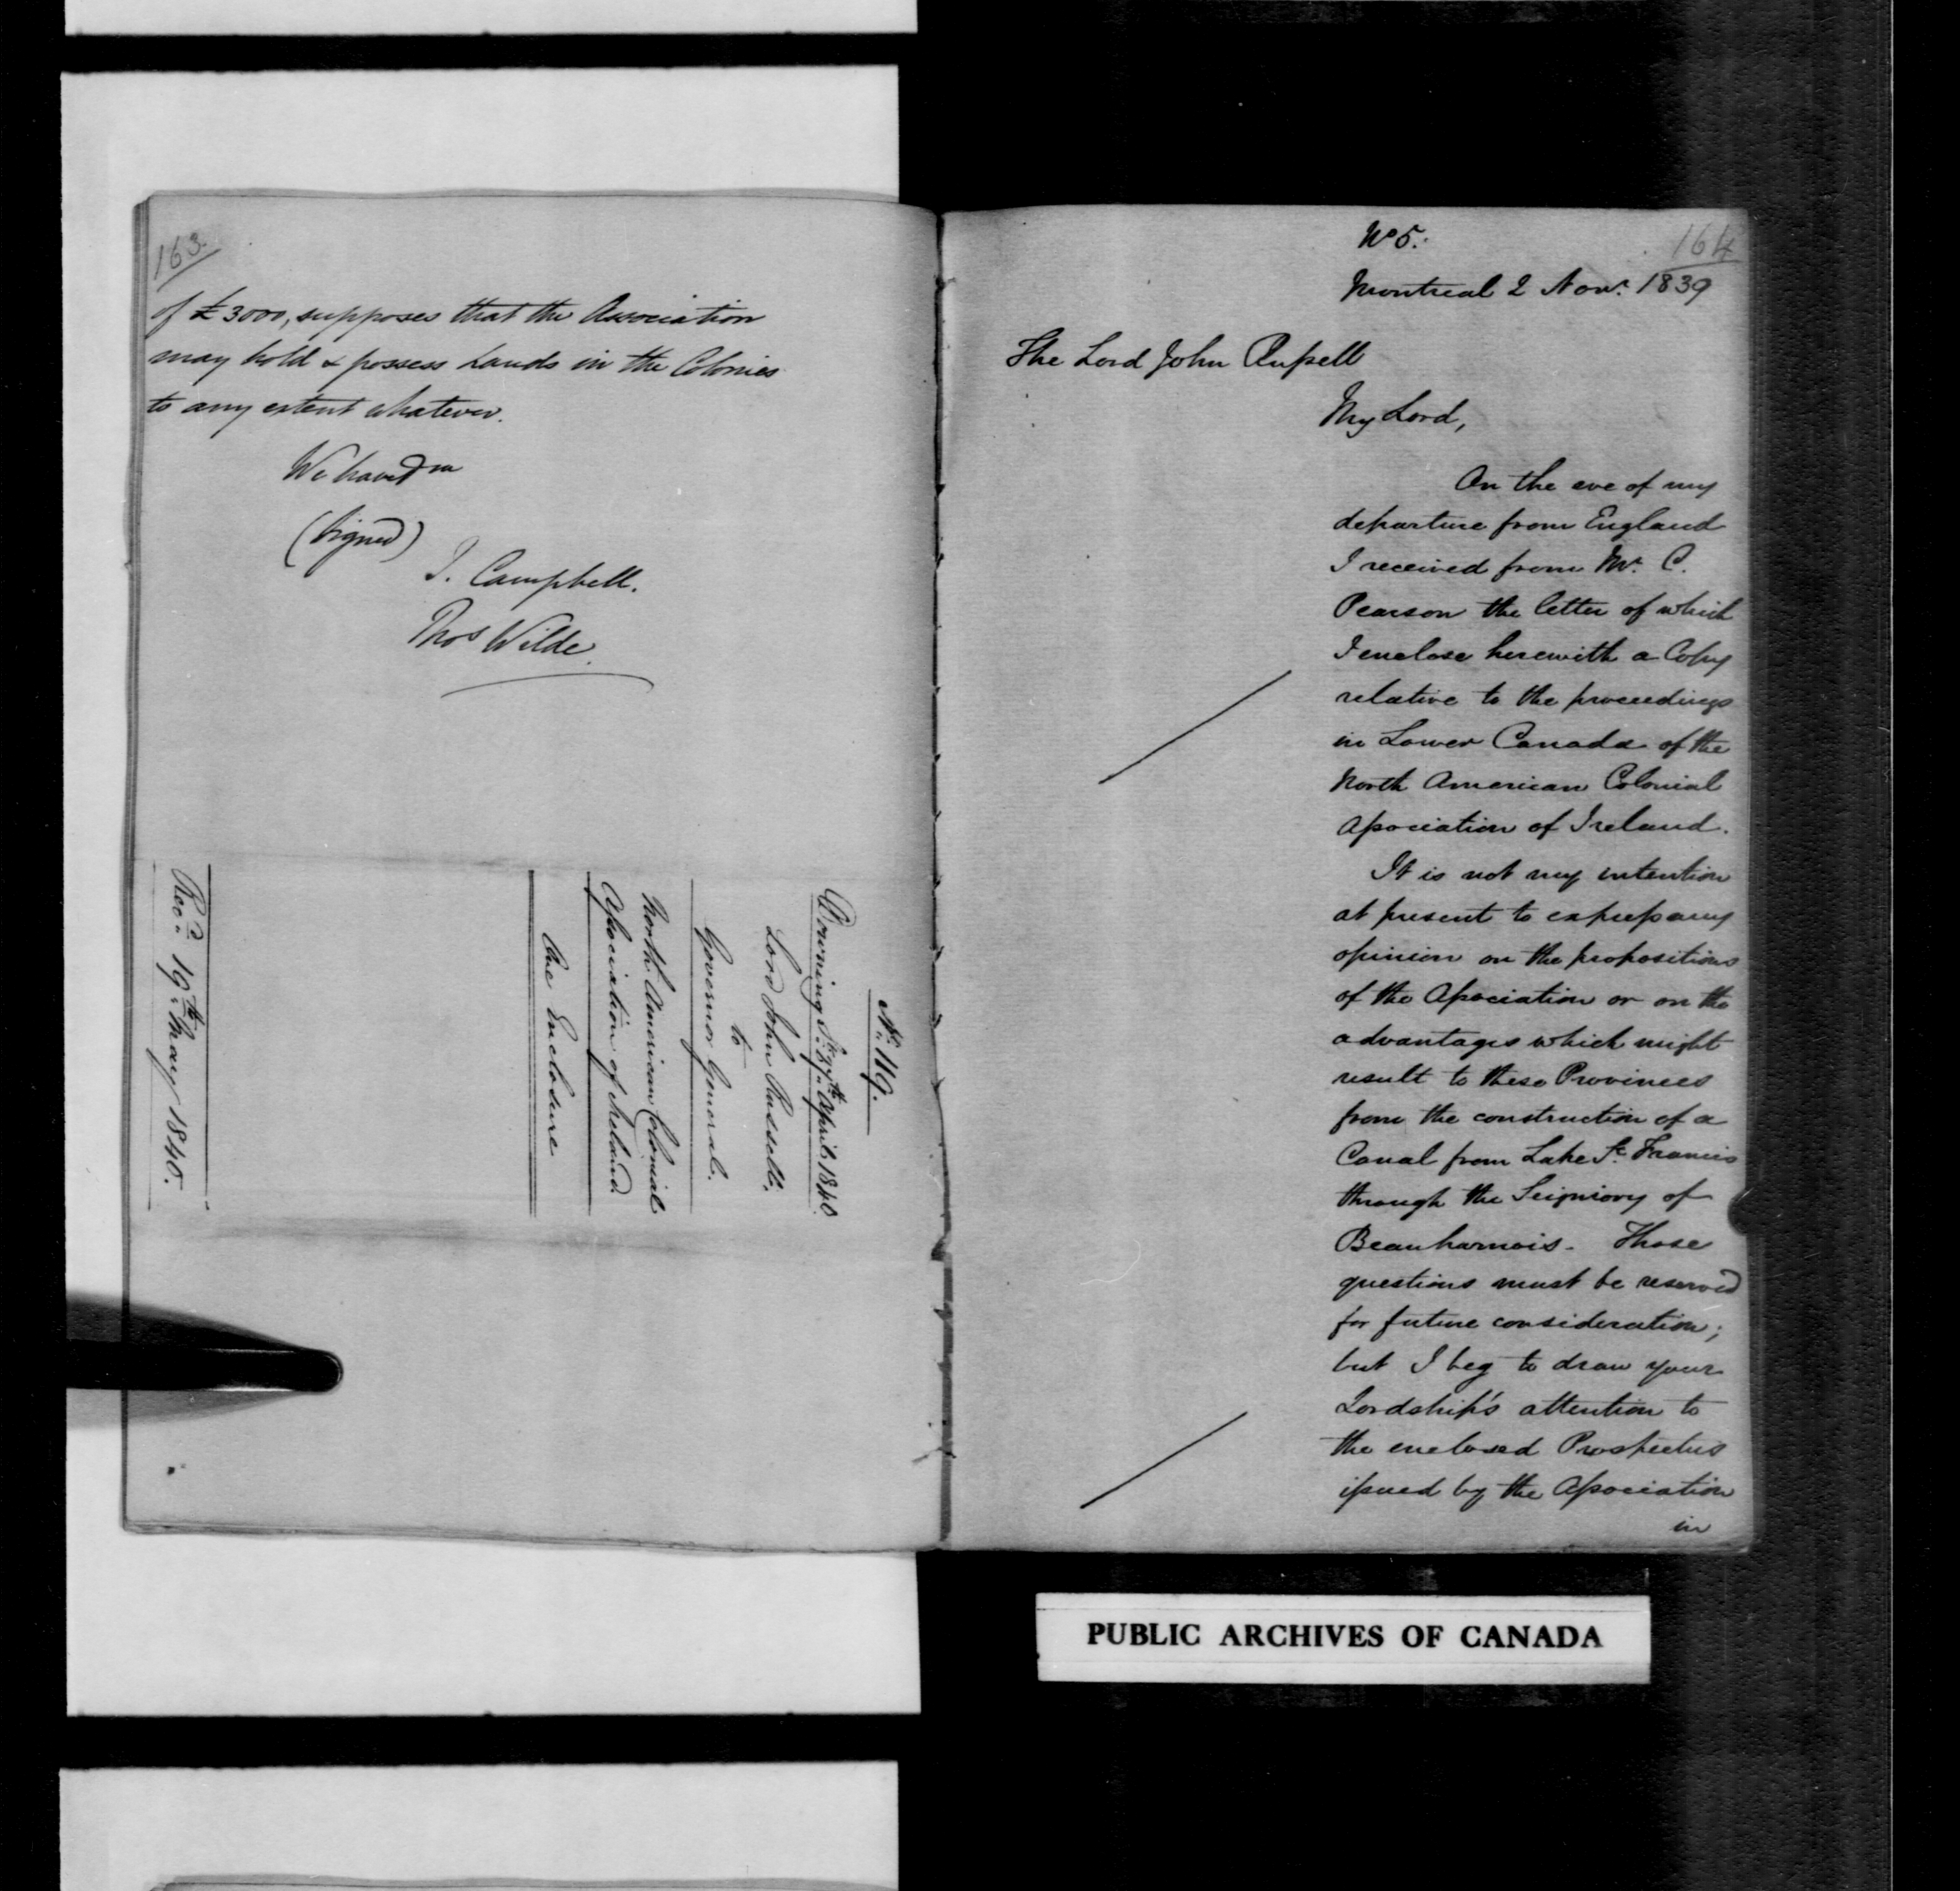 163.
of £3000, supposes that the Association
may hold & possess Lands in the Colonies
to any extent whatever.
We have &
(Signed)
J. Campbell.
Thos Wilde.
No. 119.
Downing St. 27th April 1840
Lord John Russell.
to
Governor General.
North American Colonial
Association of Ireland
One Enclosure
Recd. 19th May 1840.
164
No 5.
Montreal 2 Novr. 1839
The Lord John Russell
My Lord,
On the eve of my
departure from England
I received from Mr. C.
Pearson the letter of which
I enclose herewith a Copy
relative to the proceedings
in Lower Canada of the
North American Colonial
Association of Ireland.
It is not my intention
at present to express any
opinion on the propositions
of the Association or on the
advantages which might
result to these Provinces
from the construction of a
Canal from Lake St. Francis
through the Seigniory of
Beauharnois. Those
questions must be reserved
for future consideration;
but I beg to draw your
Lordship's attention to
the enclosed Prospectus
issued by the Association
in
PUBLIC ARCHIVES OF CANADA